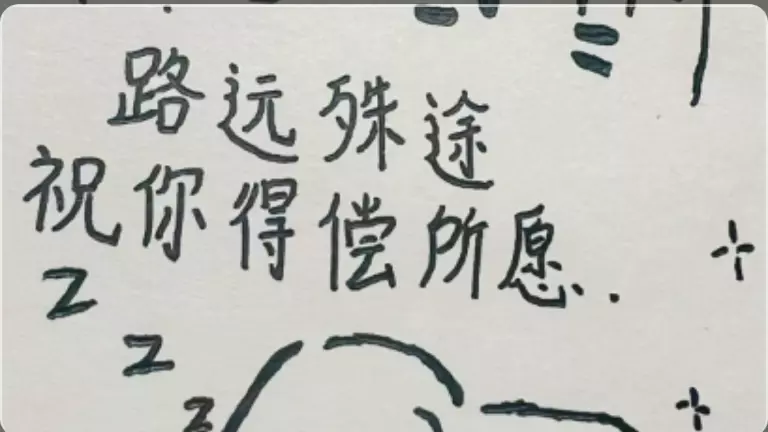 路远殊途
祝你得偿所愿.
z
z
z